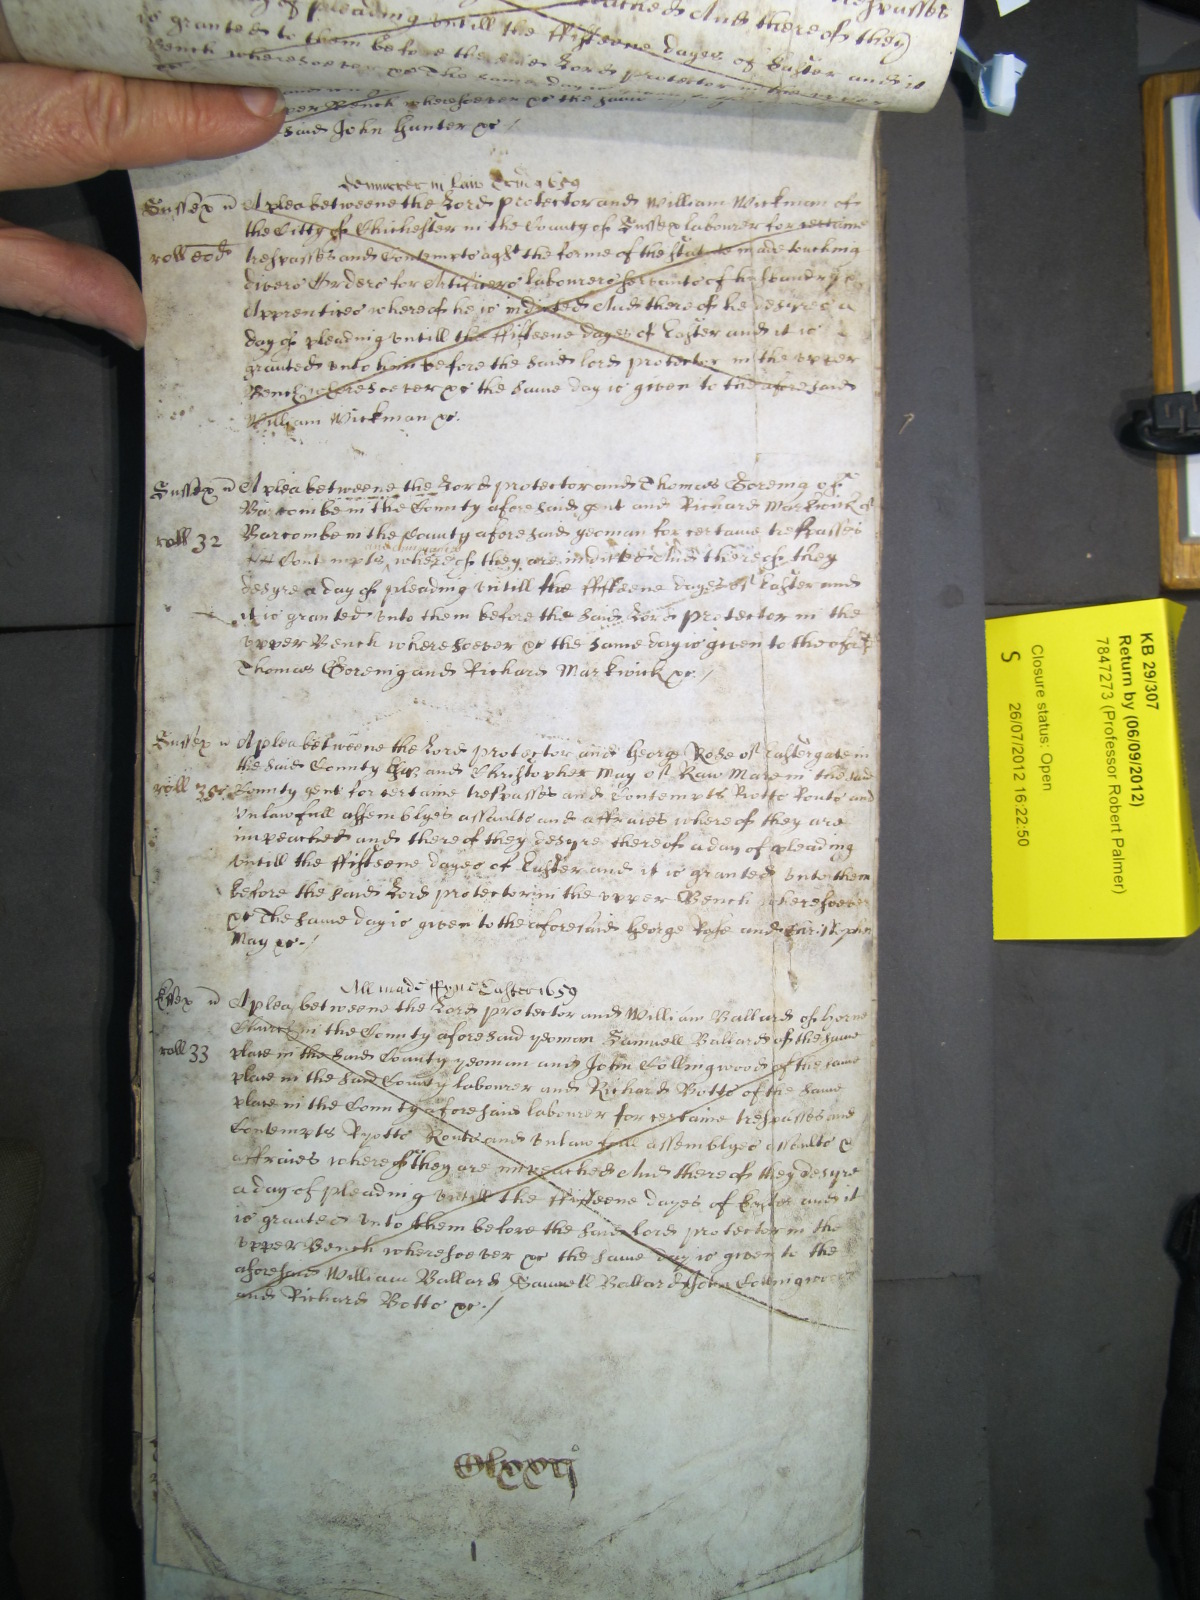 is granted to them before the said Lord protector in the upper
Bench wheresoever &c The same day is
upper Bench wheresoever &c the same
said John Hunter &c /
demurrer in law 1659
Sussex ss A plea betweene the Lord protector and William Wickman of
the Citty of Chichester in the County of Sussex labourer for certaine
roll eod trespasses and Contempts agt the forme of the statute made touching
divers Orders for Artificers labourers servants of husbandry &
Apprentices whereof he is indicted And thereof he desyres a
day of pleading untill the fifteene dayes of Easter and it is
granted unto him before the said lord protector in the upper
Bench wheresoever &c the same day is given to the aforesaid
William Wickman &c.
Sussex ss A plea betweene the Lord protector and Thomas Goreing of
Barcombe in the County aforesaid gent and Richard Markwick of
roll 32 Barcombe in the County aforesaid yeoman for certaine trespasses
Contempts whereof they are indicted And thereof they
desyre a day of pleading untill the fifteene dayes of Easter and
it is granted unto them before the said Lord protector in the
upper Bench wheresoever &c the same day is given to the
Thomas Goreing and Richard Markwick &c /
Sussex ss A plea betweene the Lord protector and George Rose of Eastergate in
the said County and Christopher May of Raw Mare in the said
roll County gent for certaine trespasses and Contempts Riotts Routs and
unlawfull assemblyes assaults and affraies whereof they are
impeached and thereof they desyre thereof a day of pleading
untill the fifteene dayes of Easter and it is granted unto them
before the said Lord protector in the upper Bench wheresoever
&c The same day is given to the aforesaid George Rose and Christopher
May &c. /
All made ffyne Easter 1659
Essex ss A plea betweene the Lord protector and William Ballard of horne
Church in the County aforesaid yeoman Samuell Ballard of the same
roll 33 place in the said County yeoman and John Collingwood of the same
place in the said County labourer and Richard Botts of the same
place in the County aforesaid labourer for certaine trespasses and
Contempts Ryotts Routs and unlawfull assemblyes assaults &
affraies whereof they are impeached And thereof they desyre
a day of pleading untill the fifteene dayes of Easter and it
is granted unto them before the said lord protector in the
upper Bench wheresoever &c the same day is given to the
aforesaid William Ballard Samuell Ballard John Collingwood
and Richard Botts &c. /
KB 29/307
Return by (06/09/2012)
7847273 (Professor Robert Palmer)
Closure status: Open
S 26/07/2012 16:22:50